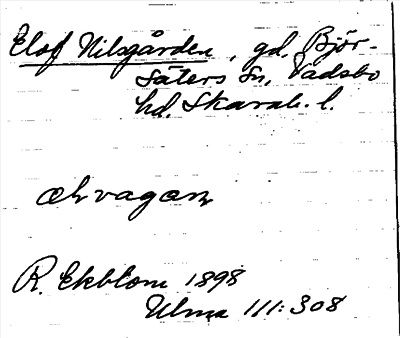 Elof Nilsgården, gd, Björ-
säters sn, Vadsbo
hd. Skarab. l.
R. Ekblom 1898
Ulma 111:308